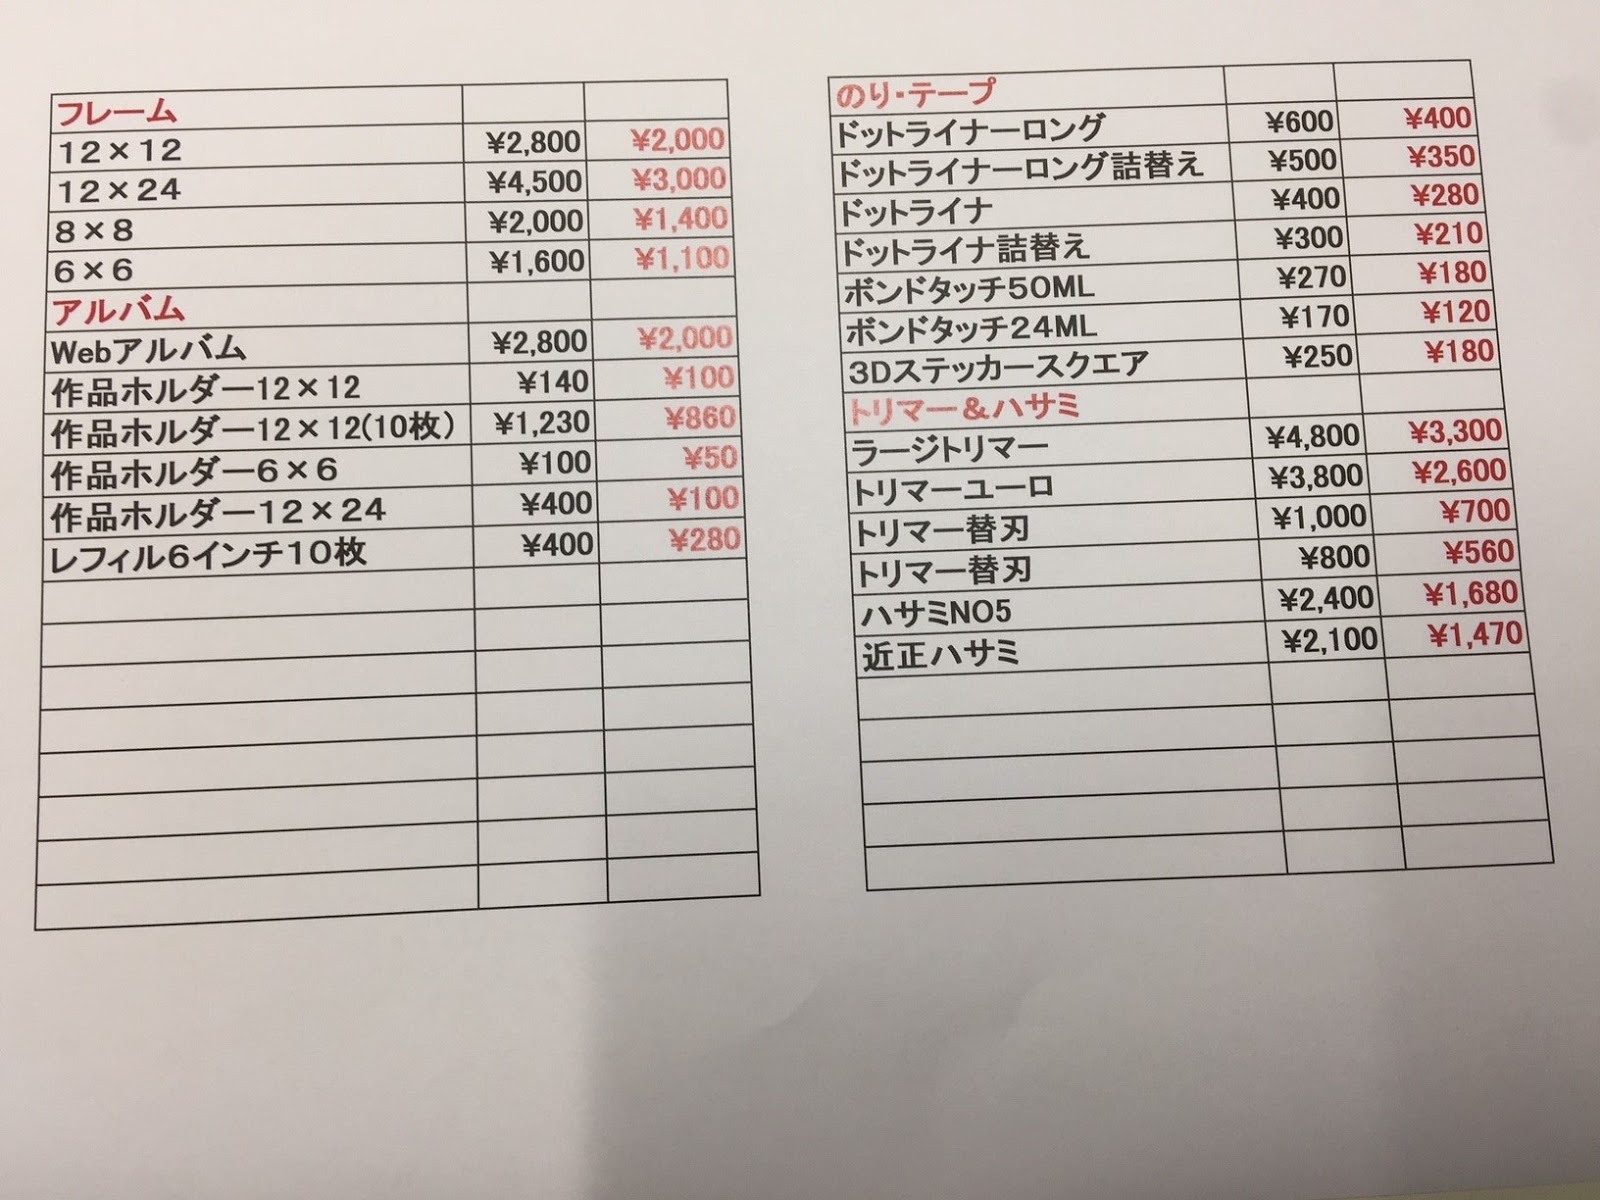 フレーム
12×12 ¥2,800 ¥2,000
12×24 ¥4,500 ¥3,000
8×8 ¥2,000 ¥1,400
6×6 ¥1,600 ¥1,100
アルバム
Webアルバム ¥2,800 ¥2,000
作品ホルダー12×12 ¥140 ¥100
作品ホルダー12×12(10枚) ¥1,230 ¥860
作品ホルダー6×6 ¥100 ¥50
作品ホルダー12×24 ¥400 ¥100
レフィル6インチ10枚 ¥400 ¥280
のり・テープ
ドットライナーロング ¥600 ¥400
ドットライナーロング詰替え ¥500 ¥350
ドットライナ ¥400 ¥280
ドットライナ詰替え ¥300 ¥210
ボンドタッチ50ML ¥270 ¥180
ボンドタッチ24ML ¥170 ¥120
3Dステッカースクエア ¥250 ¥180
トリマー&ハサミ
ラージトリマー ¥4,800 ¥3,300
トリマーユーロ ¥3,800 ¥2,600
トリマー替刃 ¥1,000 ¥700
トリマー替刃 ¥800 ¥560
ハサミNO5 ¥2,400 ¥1,680
近正ハサミ ¥2,100 ¥1,470